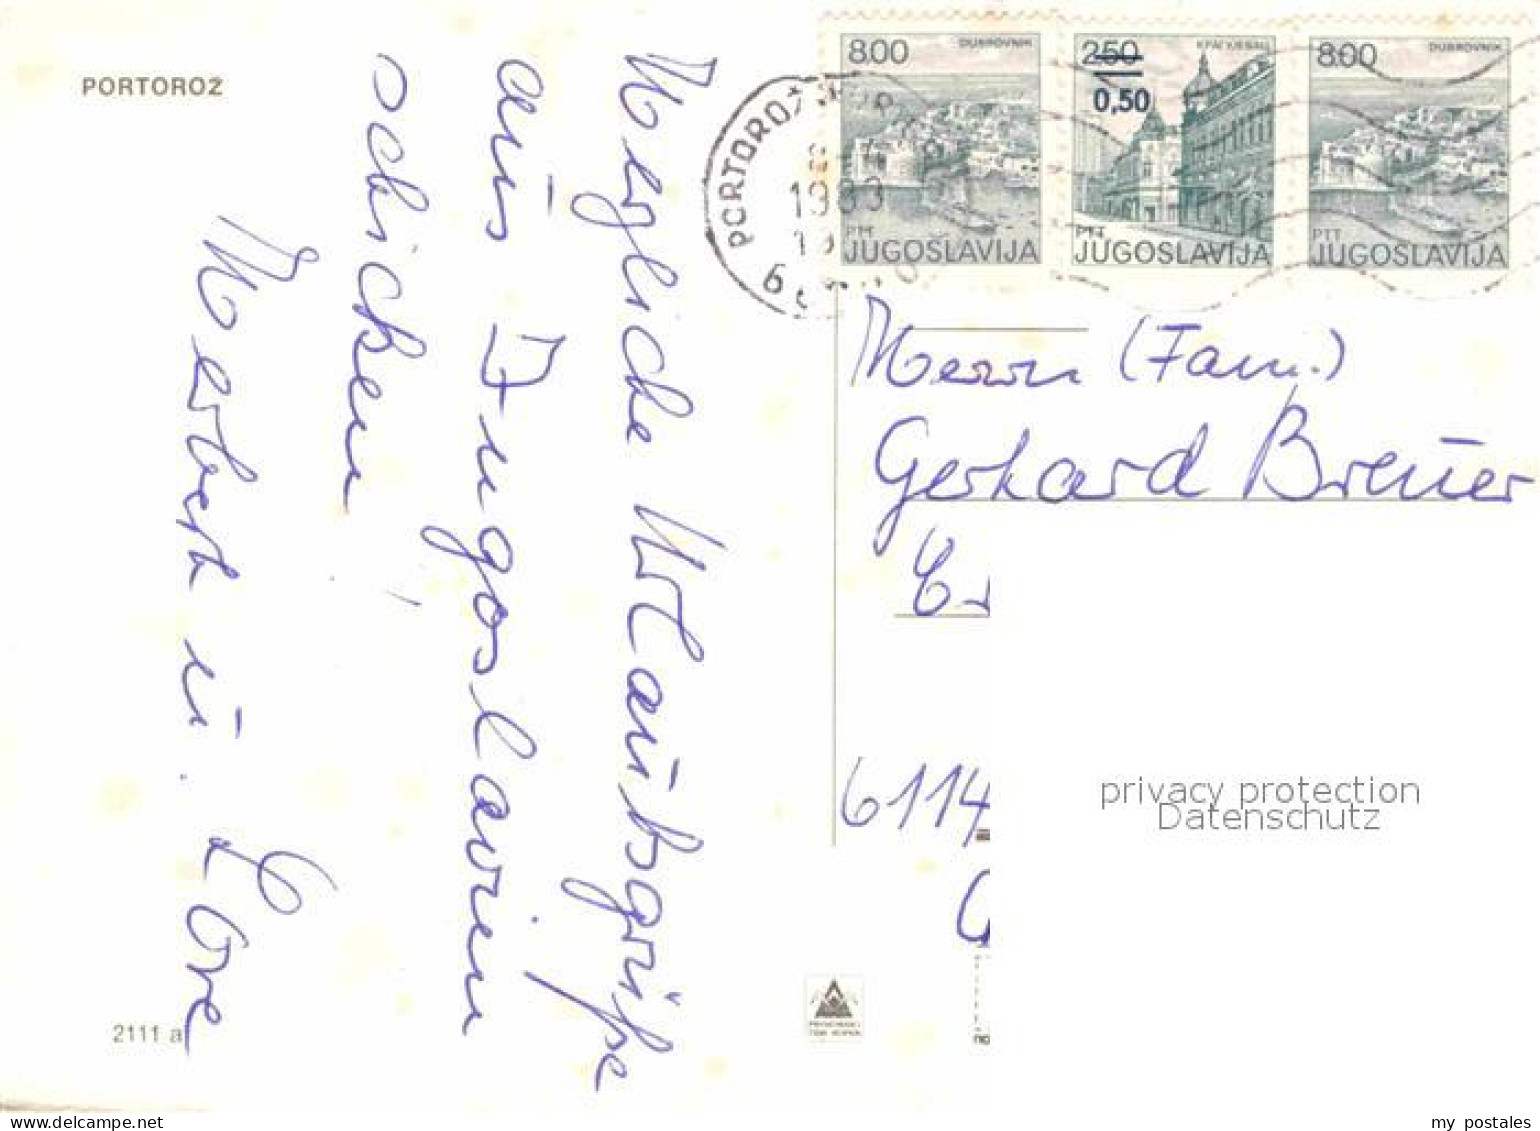 PORTOROŽ
Herzliche Urlaubsgrüße
aus Jugoslawien
schicken
Herbert u. Lore
2111 a
8.00 DUBROVNIK
PTT
JUGOSLAVIJA
2.50
0,50
КРАГУЈЕВАЦ
PTT
JUGOSLAVIJA
8.00 DUBROVNIK
PTT
JUGOSLAVIJA
PORTOROŽ
1983
Herrn (Fam.)
Gerhard Breuer
6114
privacy protection
Datenschutz
my postales
www.delcampe.net